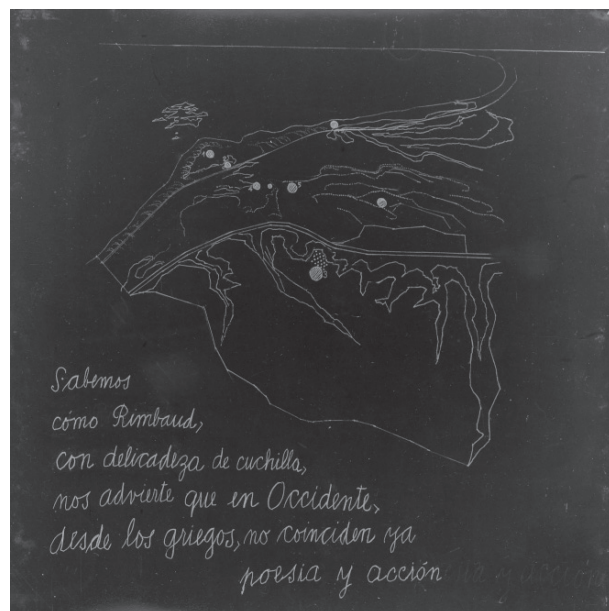 Sabemos
cómo Rimbaud,
con delicadeza de cuchilla,
nos advierte que en Occidente,
desde los griegos, no coinciden ya
poesia y acción